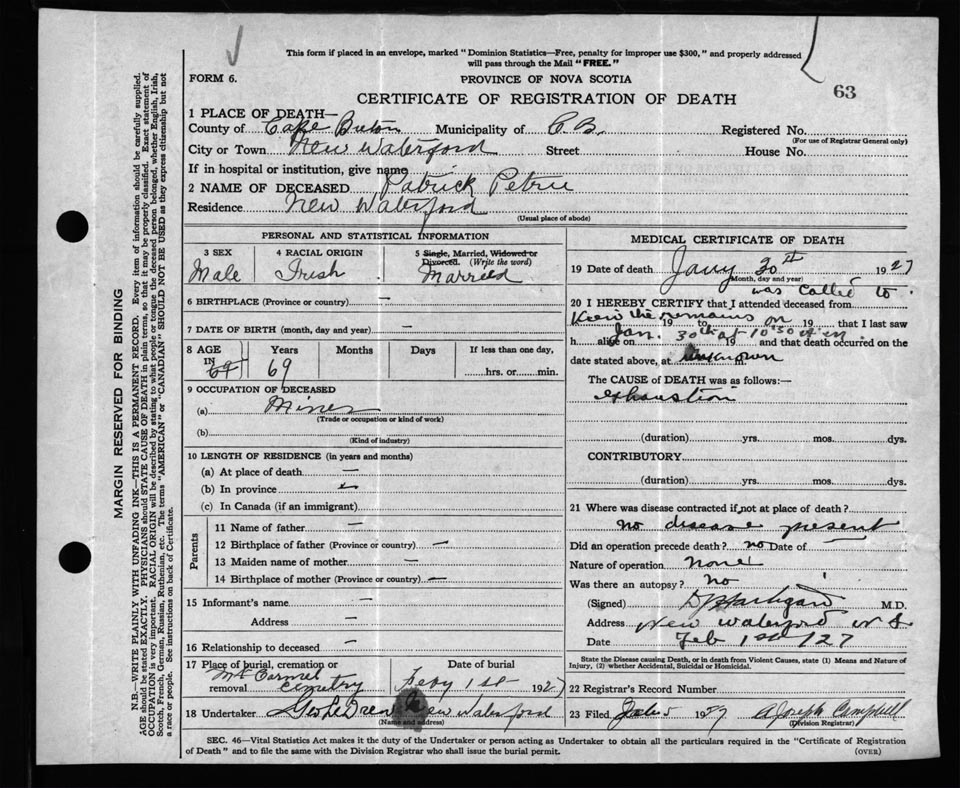 This form if placed in an envelope, marked "Dominion Statistics—Free, penalty for improper use $300," and properly addressed
will pass through the Mail "FREE."
FORM 6.
PROVINCE OF NOVA SCOTIA
63
CERTIFICATE OF REGISTRATION OF DEATH
1 PLACE OF DEATH—
County of Cape Breton Municipality of C.B. Registered No.
(For use of Registrar General only)
City or Town New Waterford Street House No.
If in hospital or institution, give name
2 NAME OF DECEASED Patrick Petrie
Residence New Waterford
(Usual place of abode)
PERSONAL AND STATISTICAL INFORMATION
3 SEX 4 RACIAL ORIGIN 5 Single, Married, Widowed or
Divorced. (Write the word)
Male Irish Married
6 BIRTHPLACE (Province or country) —
7 DATE OF BIRTH (month, day and year) —
8 AGE Years Months Days If less than one day,
IN 69 69 hrs. or min.
9 OCCUPATION OF DECEASED
(a) Miner
(Trade or occupation or kind of work)
(b)
(Kind of industry)
10 LENGTH OF RESIDENCE (in years and months)
(a) At place of death —
(b) In province
(c) In Canada (if an immigrant)
Parents
11 Name of father —
12 Birthplace of father (Province or country) —
13 Maiden name of mother —
14 Birthplace of mother (Province or country) —
15 Informant's name —
Address —
16 Relationship to deceased —
17 Place of burial, cremation or Date of burial
removal Mt Carmel Cemetry Feby 1st 1927
18 Undertaker New Waterford
(Name and address)
MEDICAL CERTIFICATE OF DEATH
19 Date of death Jany 30th 1927
(Month, day and year)
was called to
20 I HEREBY CERTIFY that I attended deceased from
view the remains on 19 to 19 that I last saw
Jan. 30th at 10:30
h alive on 19 and that death occurred on the
date stated above, at unknown
The CAUSE of DEATH was as follows:—
exhaustion
(duration) yrs. mos. dys.
CONTRIBUTORY
(duration) yrs. mos. dys.
21 Where was disease contracted if not at place of death?
no disease present
Did an operation precede death? no Date of —
Nature of operation None
Was there an autopsy? No
(Signed) Hartigan M.D.
Address New Waterford N S
Date Feb 1st/27
State the Disease causing Death, or in death from Violent Causes, state (1) Means and Nature of
Injury, (2) whether Accidental, Suicidal or Homicidal.
22 Registrar's Record Number
23 Filed 5 1927 A Joseph Campbell
(Division Registrar)
SEC. 46—Vital Statistics Act makes it the duty of the Undertaker or person acting as Undertaker to obtain all the particulars required in the "Certificate of Registration
of Death" and to file the same with the Division Registrar who shall issue the burial permit.
(OVER)
MARGIN RESERVED FOR BINDING
N.B.—WRITE PLAINLY WITH UNFADING INK—THIS IS A PERMANENT RECORD. Every item of information should be carefully supplied.
AGE should be stated EXACTLY. PHYSICIANS should STATE CAUSE OF DEATH in plain terms, so that it may be properly classified. Exact statement of
OCCUPATION is very important. RACIAL ORIGIN will be described by stating to what people or tongue the deceased person belonged, whether English, Irish,
Scotch, French, German, Russian, Ruthenian, etc. The terms "AMERICAN" or "CANADIAN" SHOULD NOT BE USED as they express citizenship but not
a race or people. See instructions on back of Certificate.